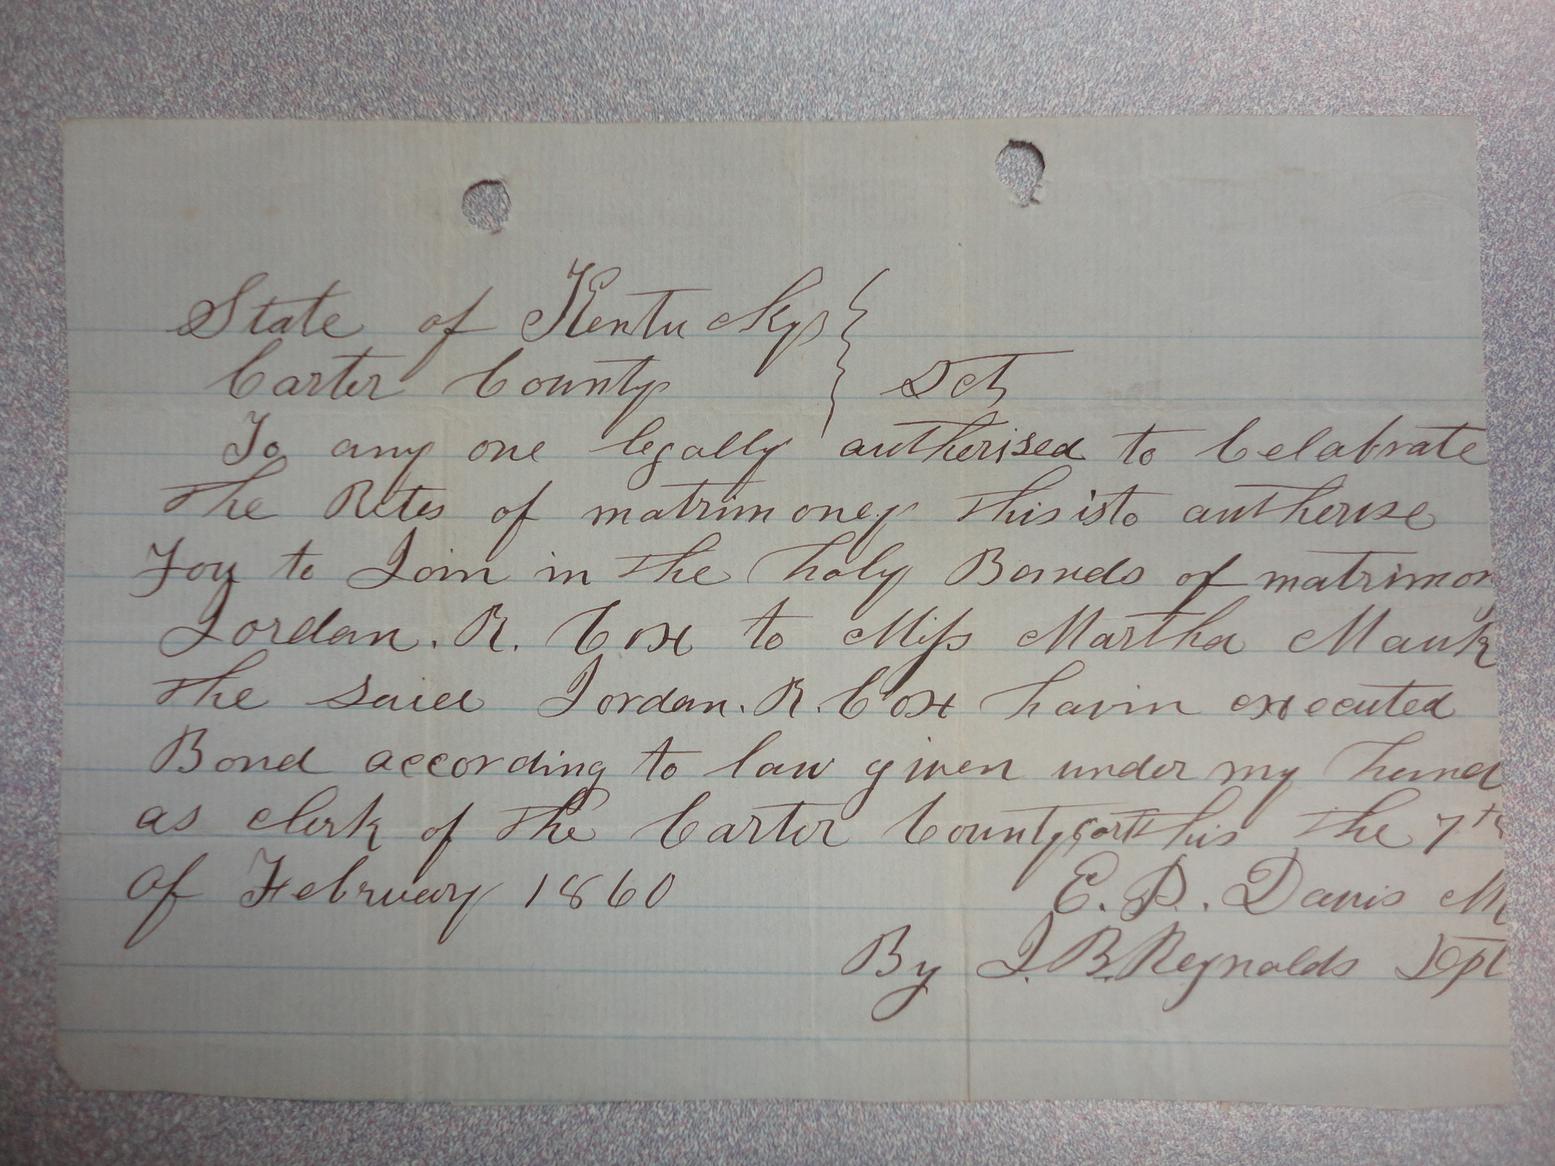 State of Kentucky }
Carter County } Sct
To any one legally autherised to Celabrate
the Rites of matrimoney this is to autherise
You to Join in the holy Bands of matrimon
Jordan. R. Cox to Miss Martha Mauk
the said Jordan. R. Cox havin executed
Bond according to law given under my hand
as clerk of the Carter County cort this the 7th
of February 1860 E. D. Davis
By J. B. Reynolds Dpt